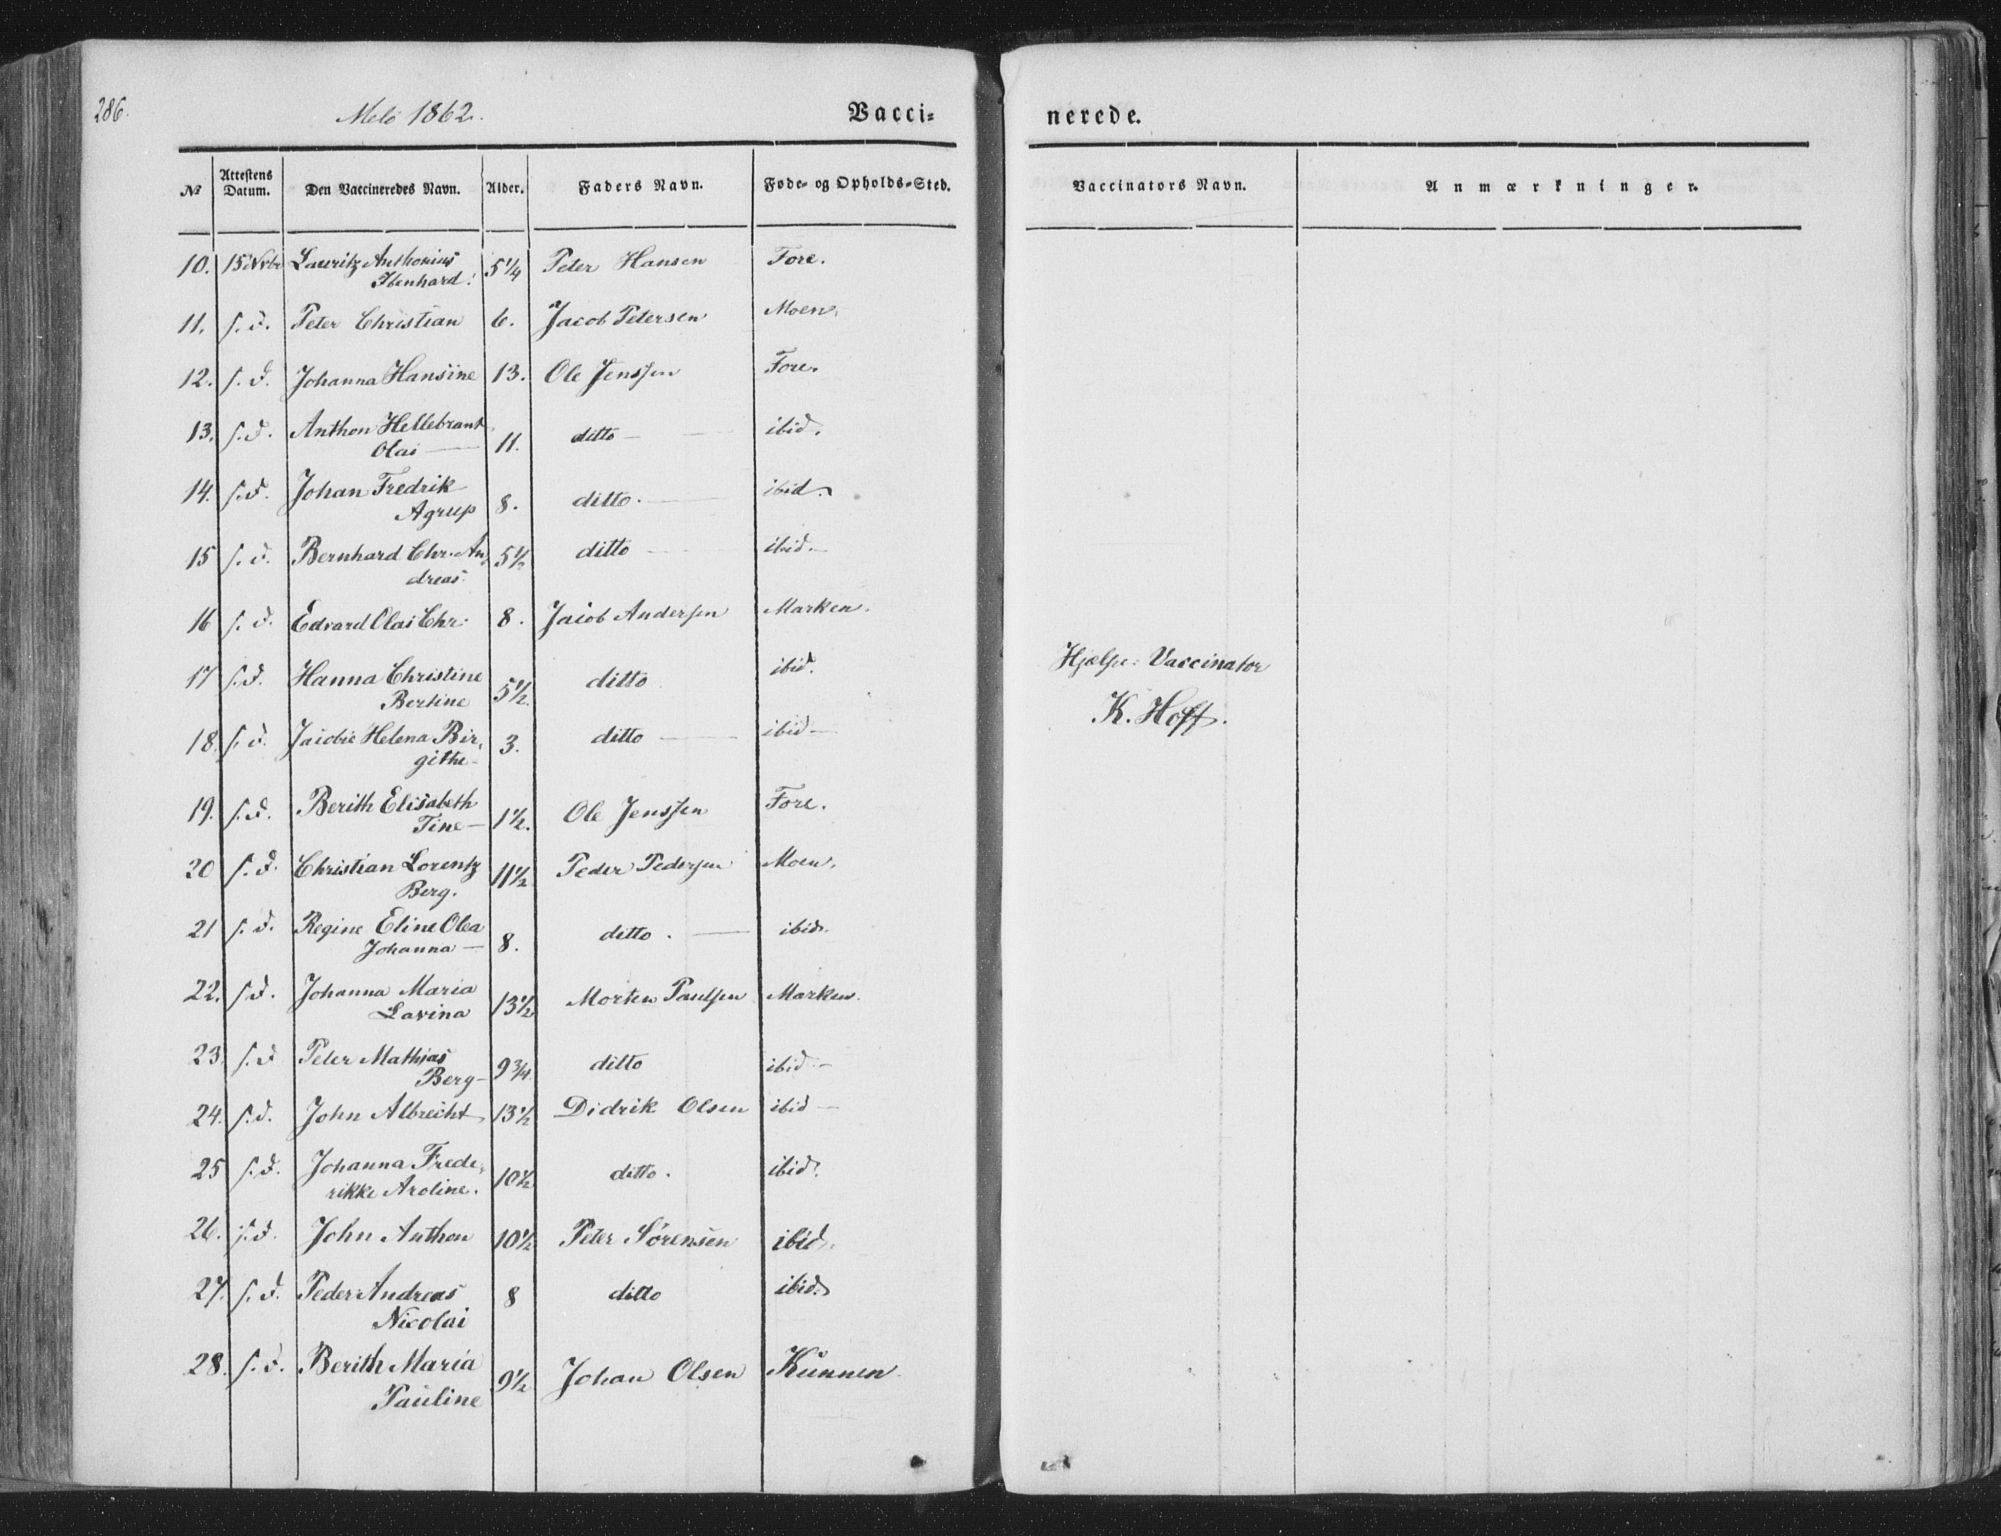 286.
Melö 1862.
Vacci-
nerede.
No Attestens Datum. Den Vaccineredes Navn. Alder. Faders Navn. Føde- og Opholds-Sted. Vaccinators Navn. Anmærkninger.
10. 15 Novbr Lauritz Anthonius
Ibenhard. 5 1/4 Peter Hansen Fore.
11. s. d. Peter Christian 6. Jacob Petersen Moen.
12. s. d. Johanna Hansine 13. Ole Jenssen Fore.
13. s. d. Anthon Hellebrant
Olai — 11. ditto — ibid.
14. s. d. Johan Fredrik
Agrup 8. ditto. — ibid.
15 s. d. Bernhard Chr. An-
dreas. 5 1/2 ditto — ibid. —
16 s. d. Edvard Olai Chr. 8. Jacob Andersen Marken.
17 s. d. Hanna Christine
Bertine 5 1/2. ditto ibid.
Hjælpe-Vaccinator
K. Hoff.
18. s. d. Jacobie Helena Bir-
githe — 3. ditto — ibid —
19. s. d. Berith Elisabeth
Tine — 1 1/2. Ole Jenssen Fore.
20 s. d. Christian Lorentz
Berg. 11 1/2 Peder Pedersen Moen.
21 s. d. Regine Eline Olea
Johanna — 8. ditto. — ibid.
22. s. d. Johanna Maria
Lavina 13 1/2 Morten Paulsen Marken.
23. s. d Peter Mathias
Berg — 9 3/4. ditto ibid. —
24. s. d. John Albrecht 13 1/2 Didrik Olsen ibid —
25 s. d. Johanna Frede-
rikke Aroline. 10 1/2 ditto. ibid.
26. s. d. John Anthon 10 1/2 Peter Sørensen ibid.
27. s. d. Peder Andreas
Nicolai 8 ditto ibid.
28. s. d. Berith Maria
Pauline 9 1/2 Johan Olsen Kunnen.